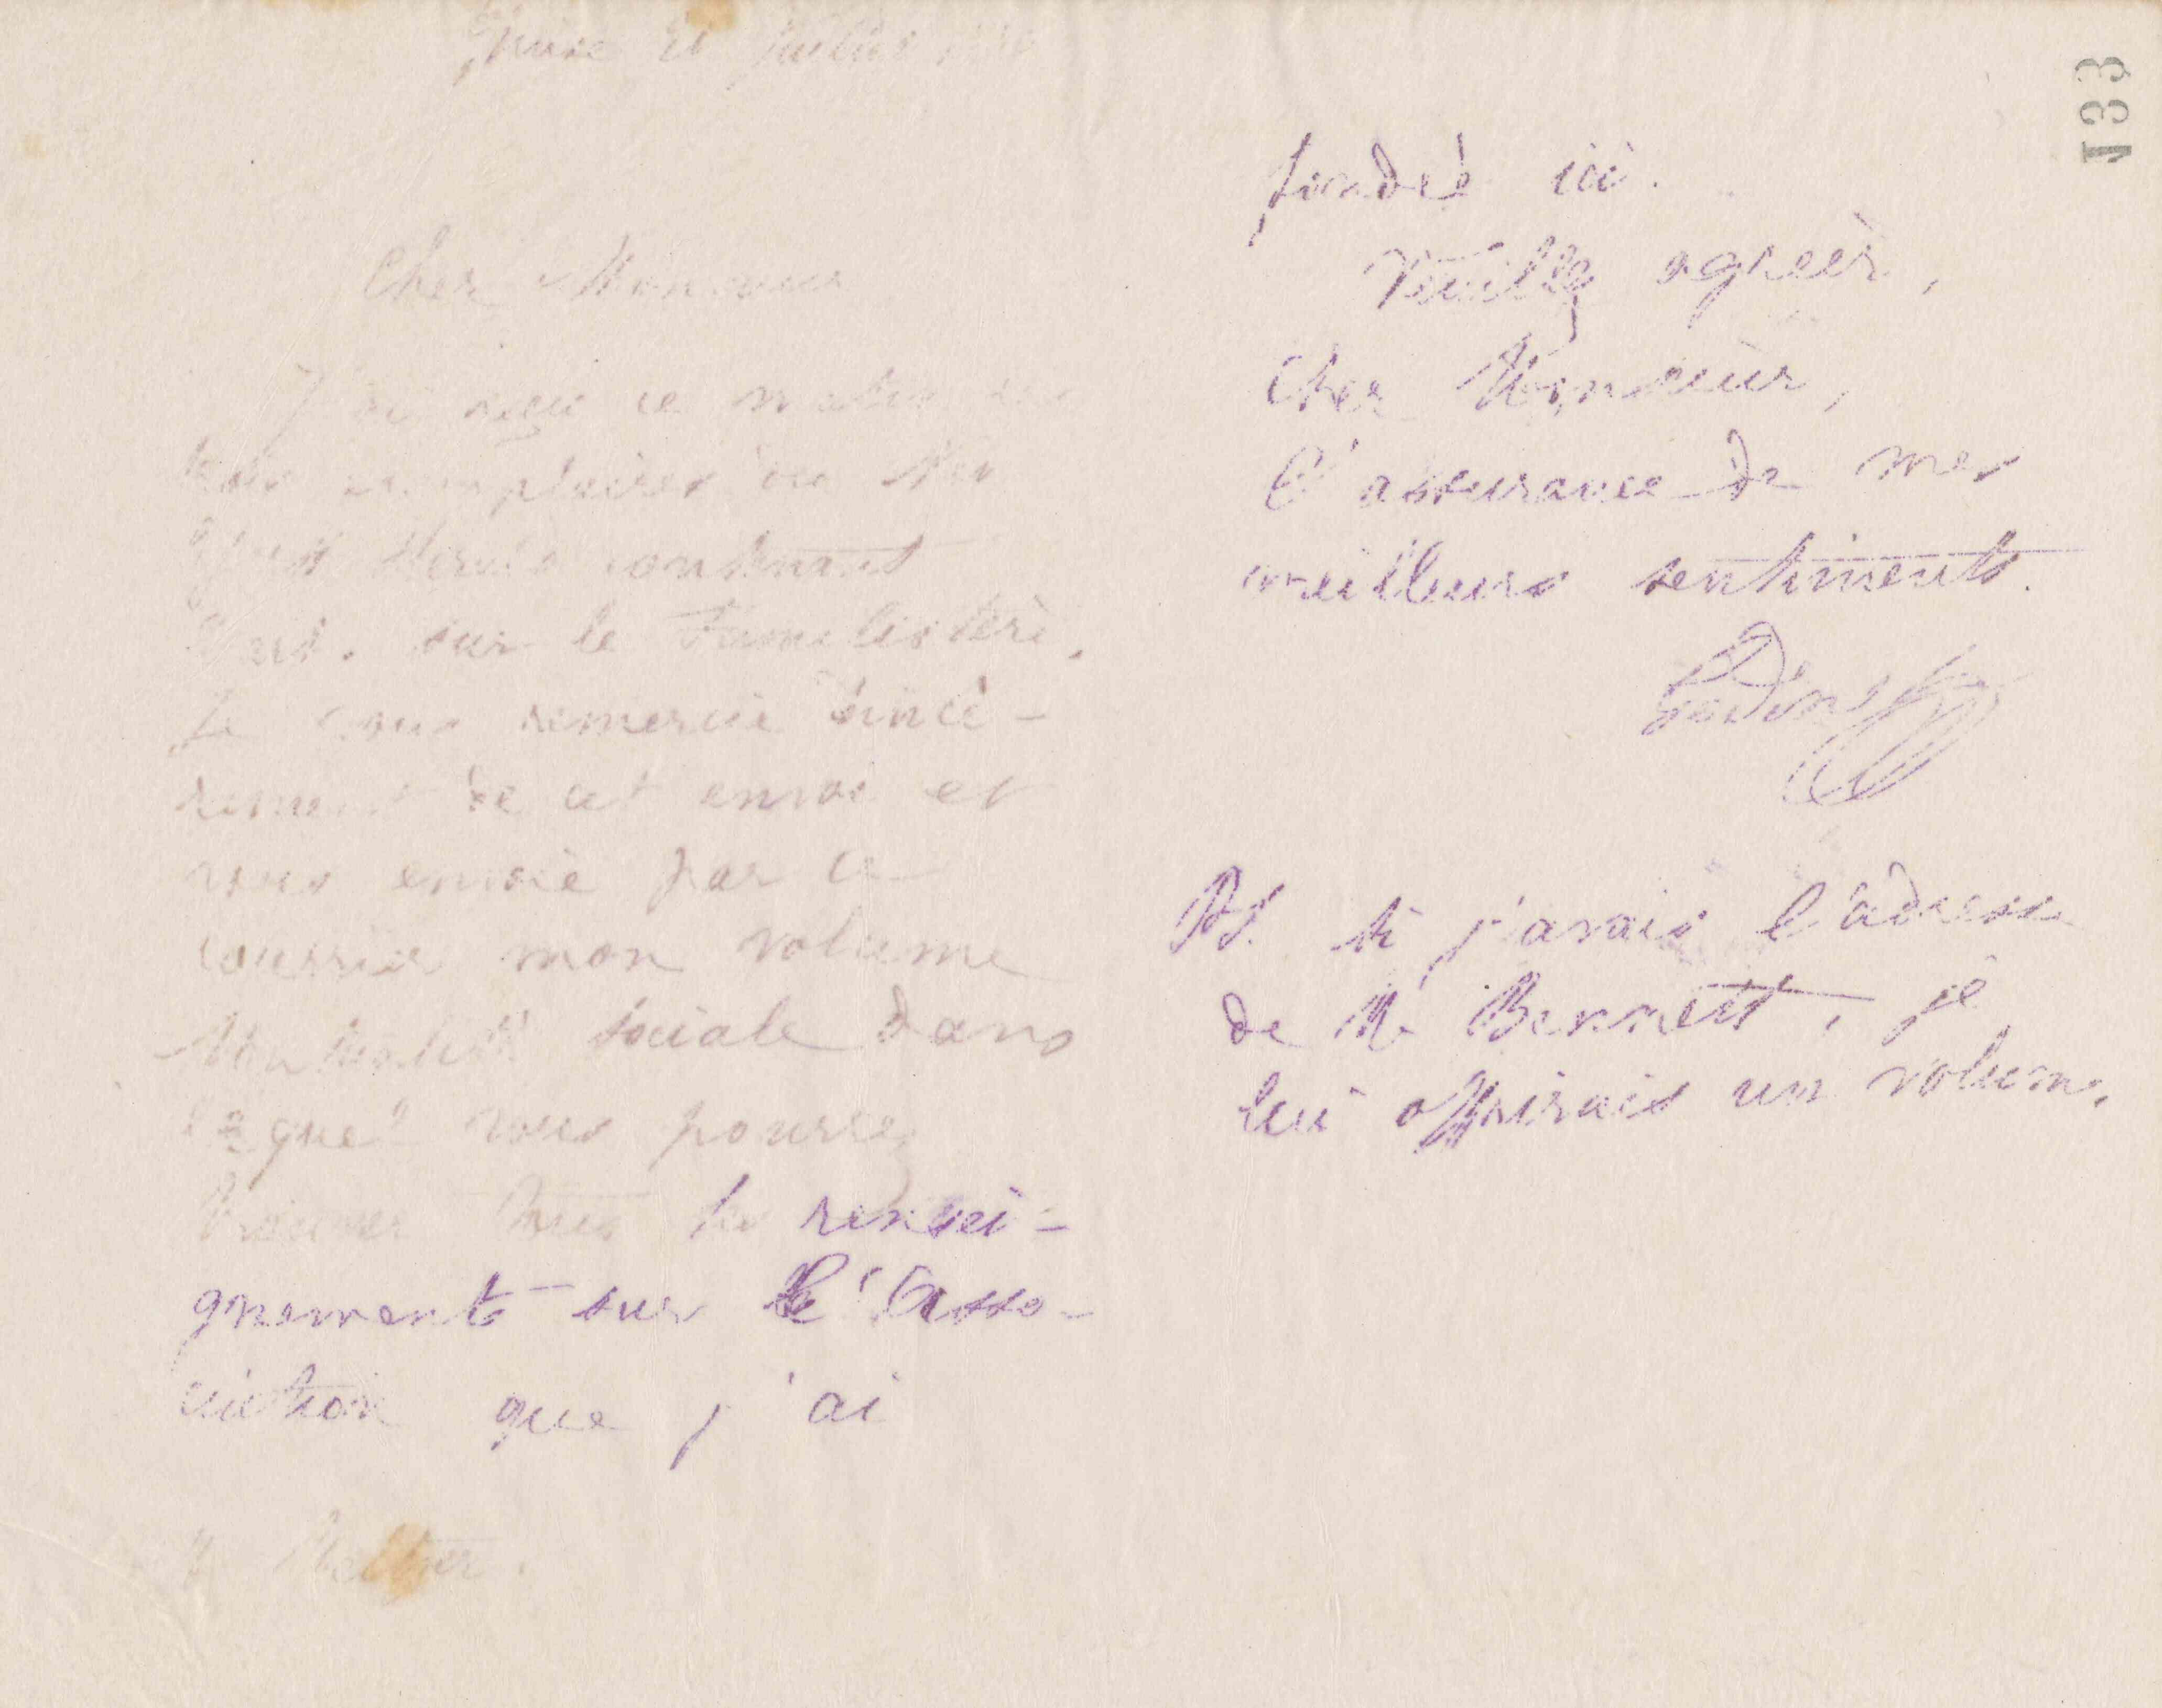 Guise 21 Juillet
Cher Monsieur
J'ai reçu ce matin les
trois exemplaires du New
York Herald contenant
sur le Familistère.
Je vous remercie sincè-
rement de cet envoi et
vous envoie par ce
courrier mon volume
Mutualité sociale dans
lequel vous pourrez
trouver tous les rensei-
gnements sur l'asso-
ciation que j'ai
133
fondée ici.
Veuillez agréer,
Cher Monsieur,
l'assurance de mes
meilleurs sentiments.
Godin
PS. Si j'avais l'adresse
de Mr Bennett, je
lui offrirais un volume.